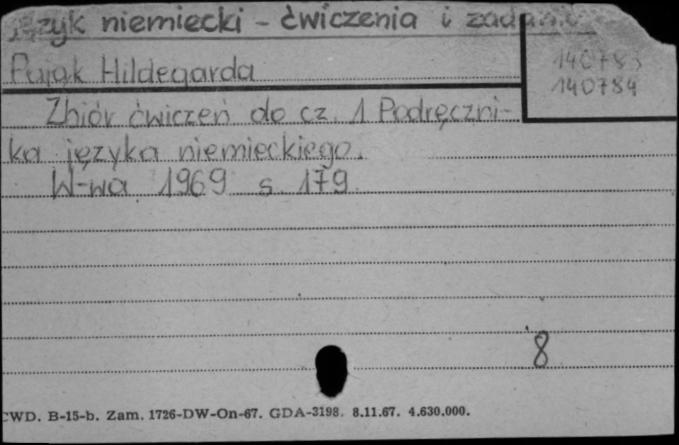 Język niemiecki - ćwiczenia i zadania
140783
140784
Pająk Hildegarda
Zbiór ćwiczeń do cz. 1 Podręczni-
ka języka niemieckiego.
W-wa 1969 s. 179
8
CWD. B-15-b. Zam. 1726-DW-On-67. GDA-3198. 8.11.67. 4.630.000.